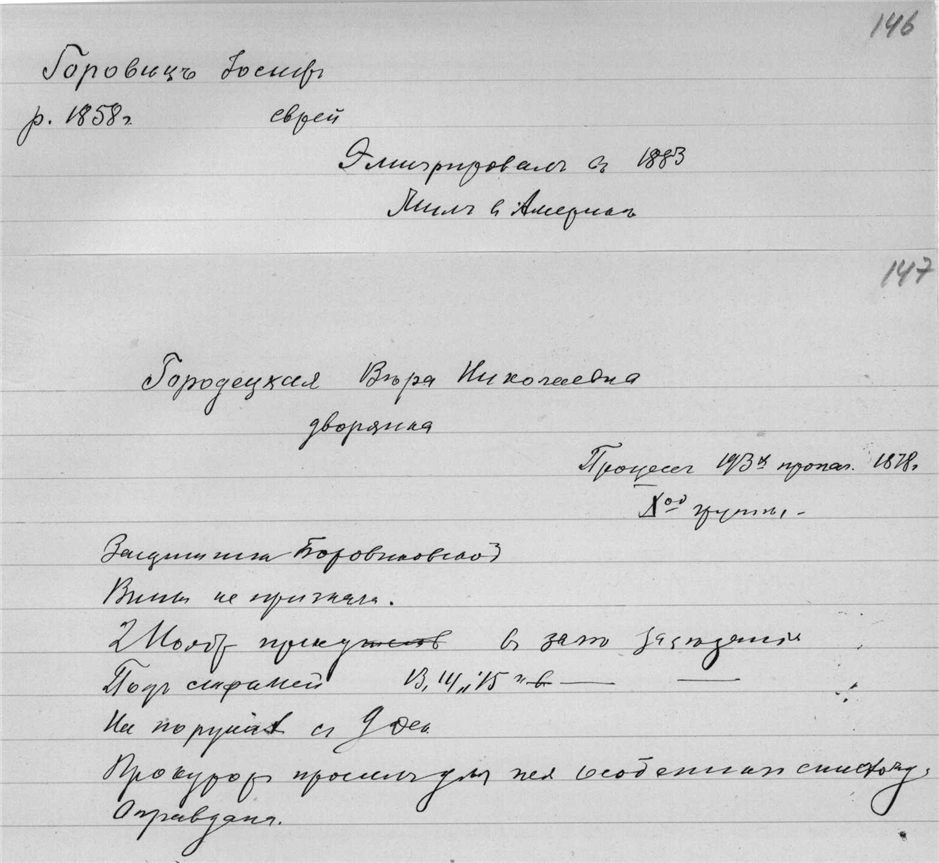 146
Горовицъ Іосифъ
р. 1858 г. еврей
Эмигрировалъ въ 1883
Жилъ въ Америкѣ
147
Городецкая Вѣра Николаевна
дворянка
Процессъ 193х пропаг. 1878 г.
Xой группы.
Защитникъ Боровиковскій
Вины не признала.
2 Нояб в залѣ засѣданій
Подъ стражей 13, 14, 15 в — —
На порукахъ съ 9 дек
Прокуроръ просилъ для нея особеннаго снисхожд.
Оправдана.